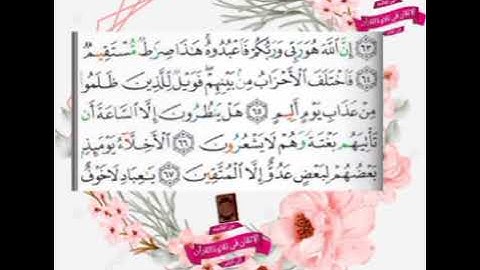 ٦٣ إِنَّ ٱللَّهَ هُوَ رَبِّى وَرَبُّكُمْ فَٱعْبُدُوهُ هَٰذَا صِرَٰطٌ مُّسْتَقِيمٌ
٦٤ فَٱخْتَلَفَ ٱلْأَحْزَابُ مِنۢ بَيْنِهِمْ فَوَيْلٌ لِّلَّذِينَ ظَلَمُوا۟
مِنْ عَذَابِ يَوْمٍ أَلِيمٍ ٦٥ هَلْ يَنظُرُونَ إِلَّا ٱلسَّاعَةَ أَن
تَأْتِيَهُم بَغْتَةً وَهُمْ لَا يَشْعُرُونَ ٦٦ ٱلْأَخِلَّآءُ يَوْمَئِذٍۭ
بَعْضُهُمْ لِبَعْضٍ عَدُوٌّ إِلَّا ٱلْمُتَّقِينَ ٦٧ يَٰعِبَادِ لَا خَوْفٌ
الإتقان في تلاوة القرآن